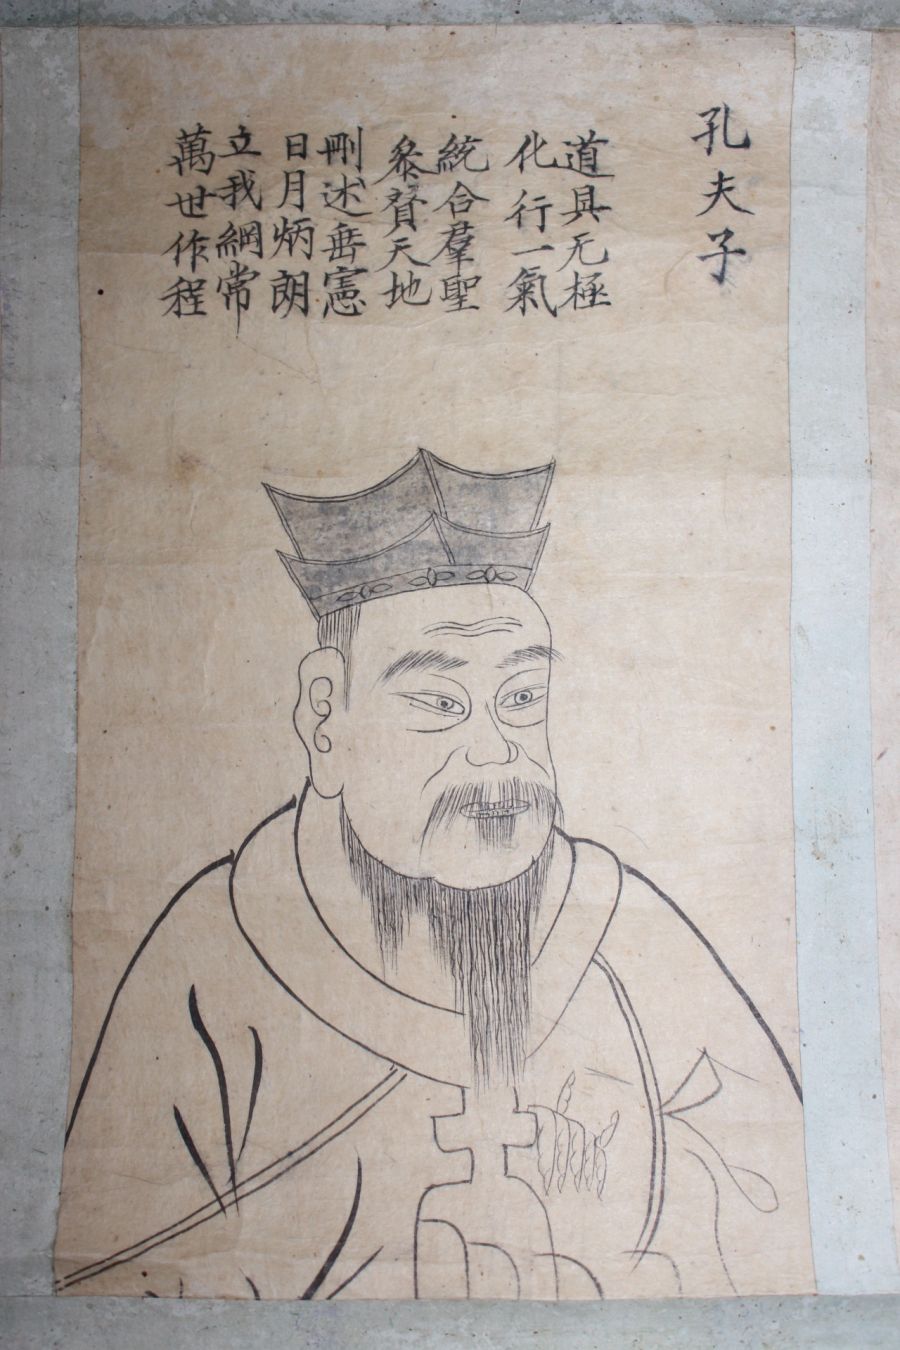 孔夫子
道具无極
化行一氣
統合羣聖
叅賛天地
刪述垂憲
日月炳朗
立我綱常
萬世作程